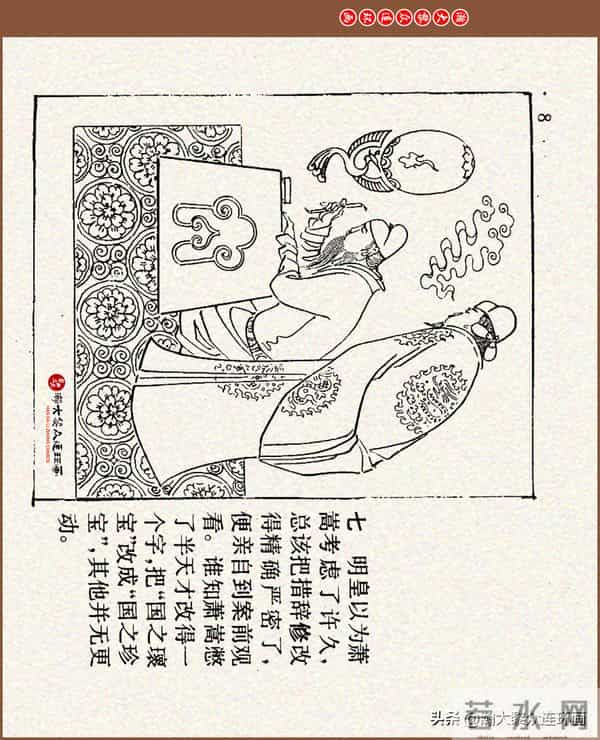 8
七 明皇以为萧
嵩考虑了许久,
总该把措辞修改
得精确严密了,
便亲自到案前观
看。谁知萧嵩憋
了半天才改得一
个字,把“国之瓌
宝”改成“国之珍
宝”,其他并无更
动。
头条 @
若水网